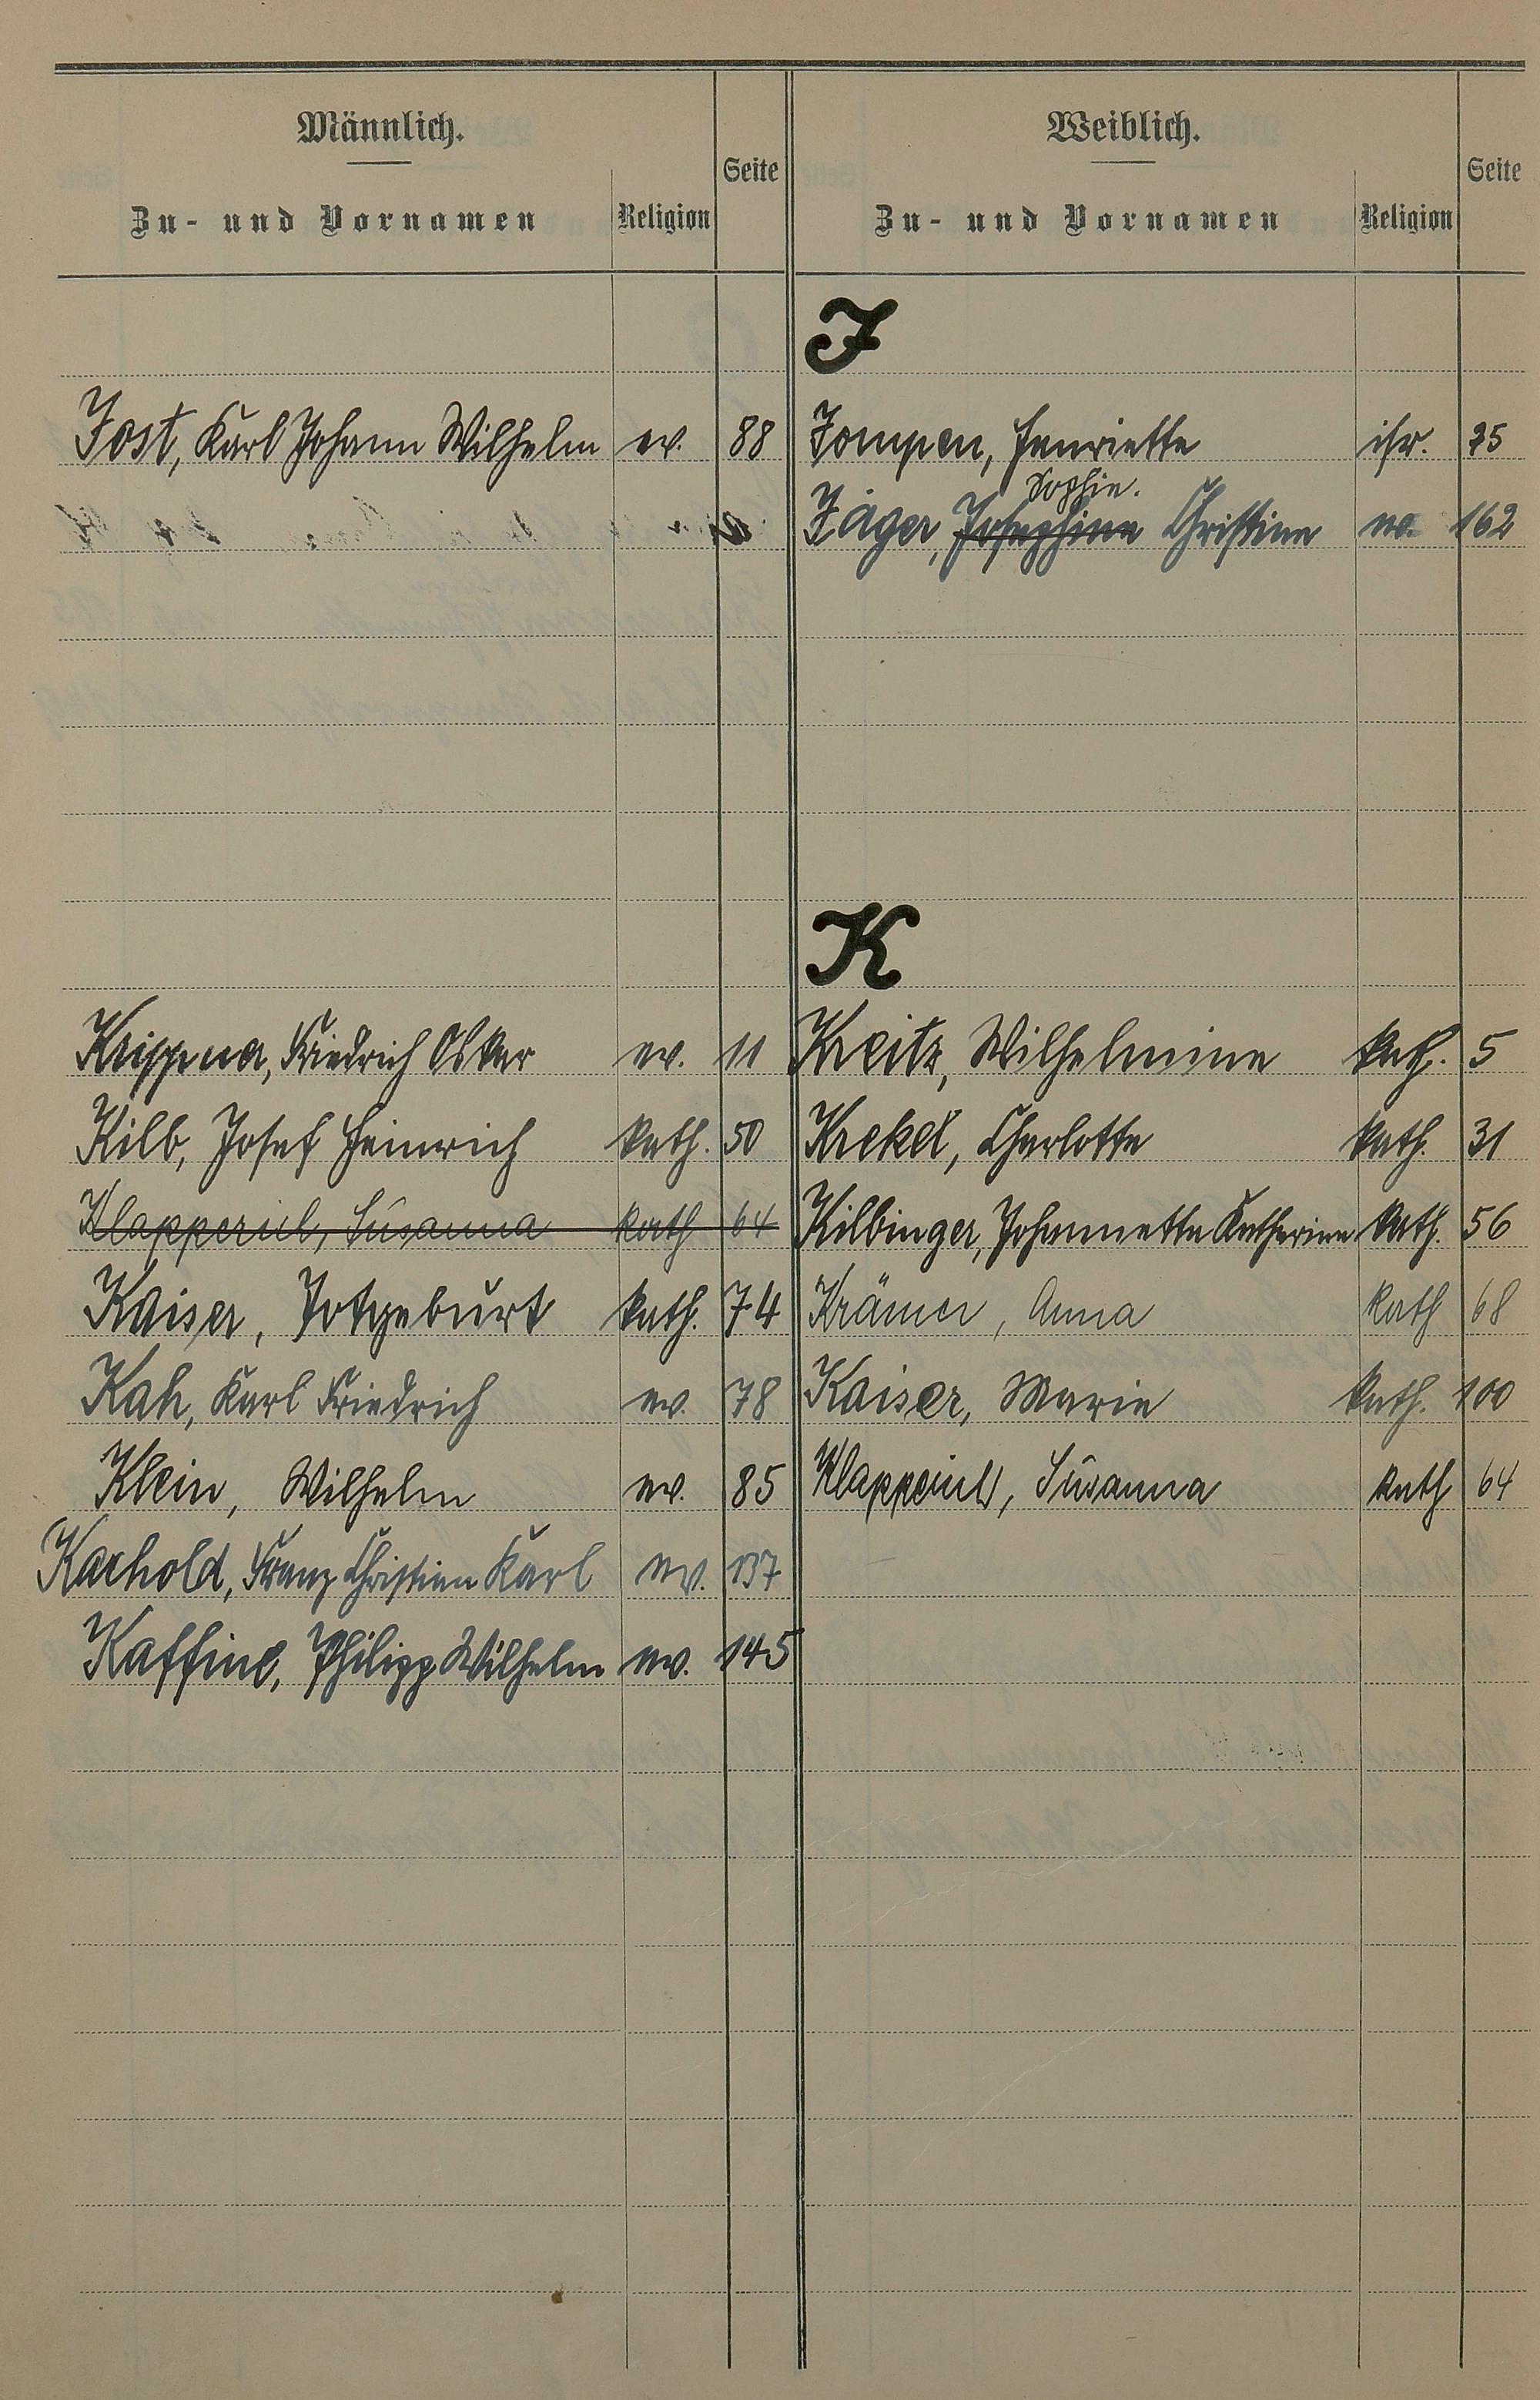 Männlich.
Zu- und Vornamen Religion Seite
Weiblich.
Zu- und Vornamen Religion Seite
J
Jost, Karl Johann Wilhelm ev. 88
Jompen, Henriette isr. 25
Sophie.
Jäger, Josephine Christine ev. 162
K
Krippner, Friedrich Oskar ev. 11
Kreitz, Wilhelmine kath. 5
Kilb, Josef Heinrich kath. 50
Krekel, Charlotte kath. 31
Klapperich, Susanna kath 64
Kilbinger, Johannette Katharine kath. 56
Kaiser, Totgeburt kath. 74
Krämer, Anna kath 68
Kah, Karl Friedrich ev. 78
Kaiser, Marie kath. 100
Klein, Wilhelm ev. 85
Klapperich, Susanna kath 64
Karhold, Franz Christian Karl ev. 137
Kaffine, Philipp Wilhelm ev. 145